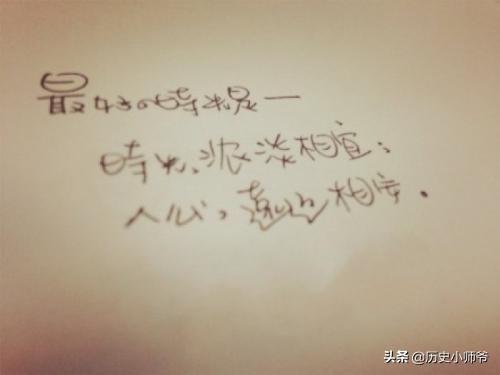 最好的时光是一
时光，浓淡相宜；
人心，远近相安。
头条 @历史小师爷